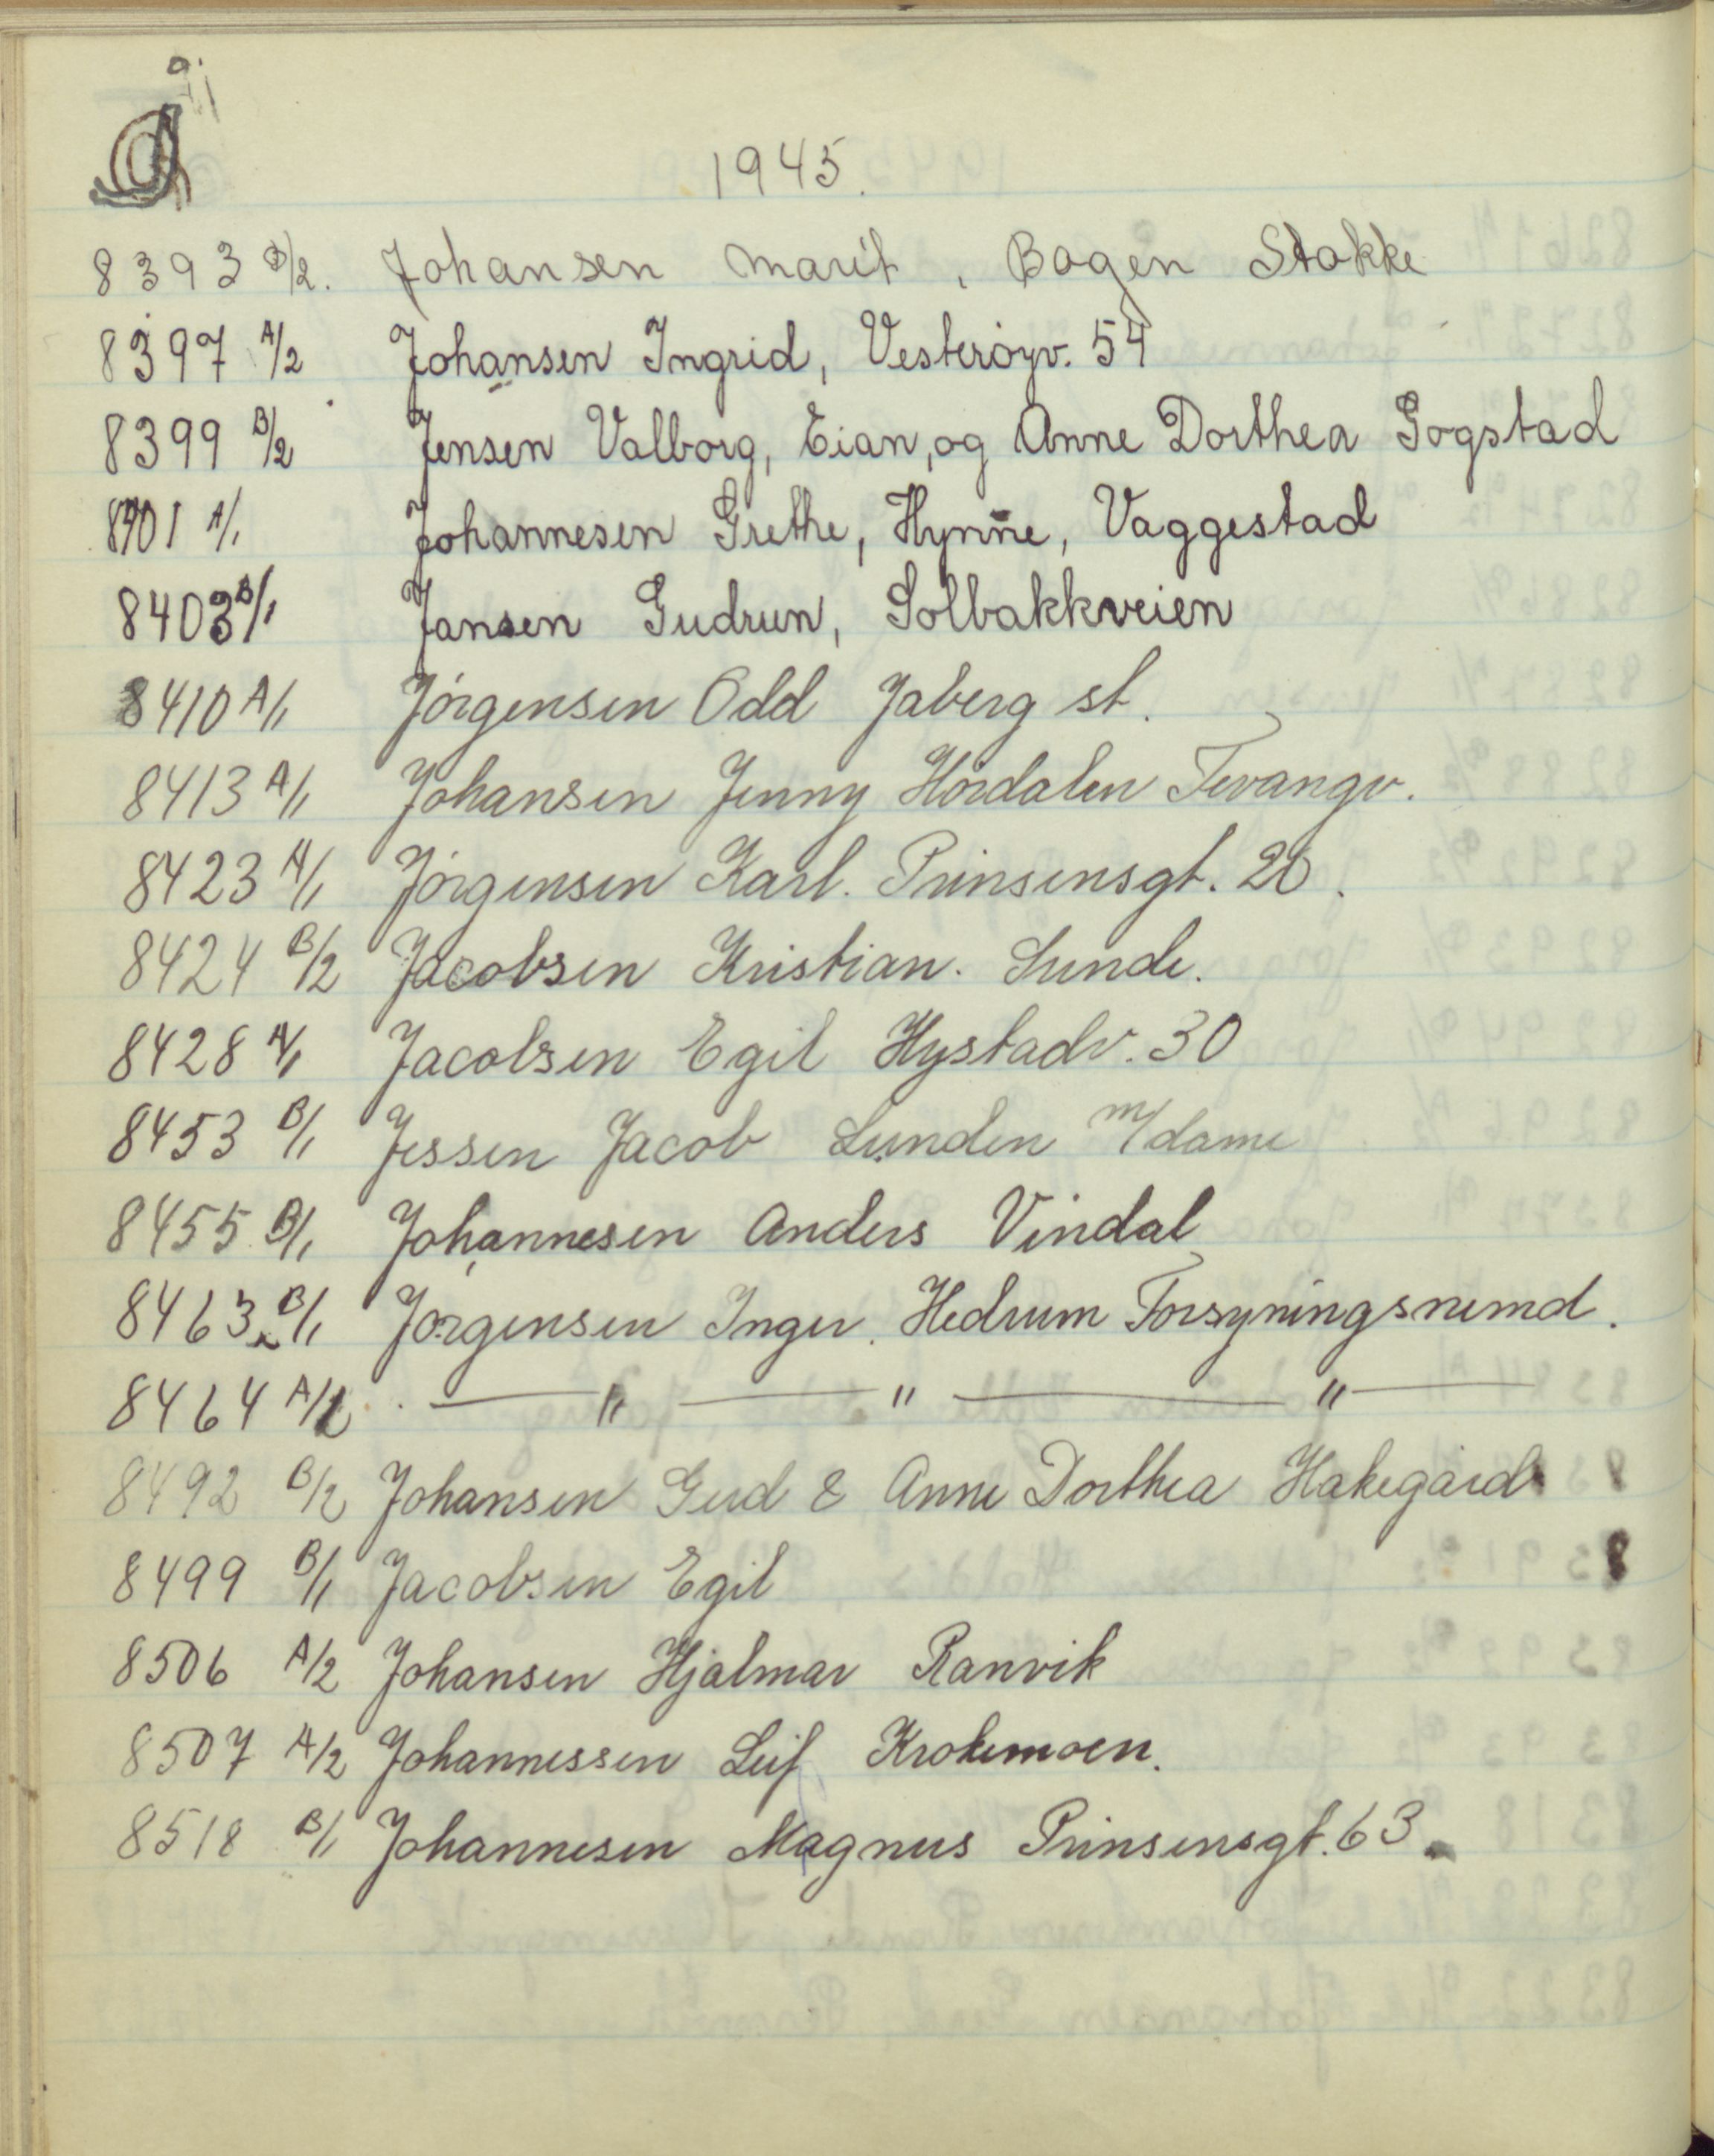 J
1945.
8393 B/2. Johansen Marit, Bogen Stokke
8397 A/2 Johansen Ingrid, Vesterøyv. 54
8399 B/2 Jensen Valborg, Eian, og Anne Dorthea Gogstad
8401 A/1 Johannesen Grethe, Hynne, Vaggestad
8403 B/1 Jansen Gudrun, Solbakkveien
8410 A/1 Jørgensen Odd Jåberg st.
8413 A/1 Johansen Jenny Hördalen Tevangv.
8423 A/1 Jørgensen Karl. Prinsensgt. 26.
8424 B/2 Jacobsen Kristian. Sunde.
8428 A/1 Jacobsen Egil Hystadv. 30
8453 B/1 Jessen Jacob Lunden m/dame
8455 B/1 Johannesen Anders Vindal
8463 B/1 Jørgensen Inger. Hedrum Forsyningsnemd.
8464 A/2 . — " — " — " —
8492 B/2 Johansen Gerd & Anne Dorthea Hakegård
8499 B/1 Jacobsen Egil
8506 A/2 Johansen Hjalmar Ranvik
8507 A/2 Johannessen Leif Krokemoen.
8518 B/1 Johannesen Magnus Prinsensgt. 63.